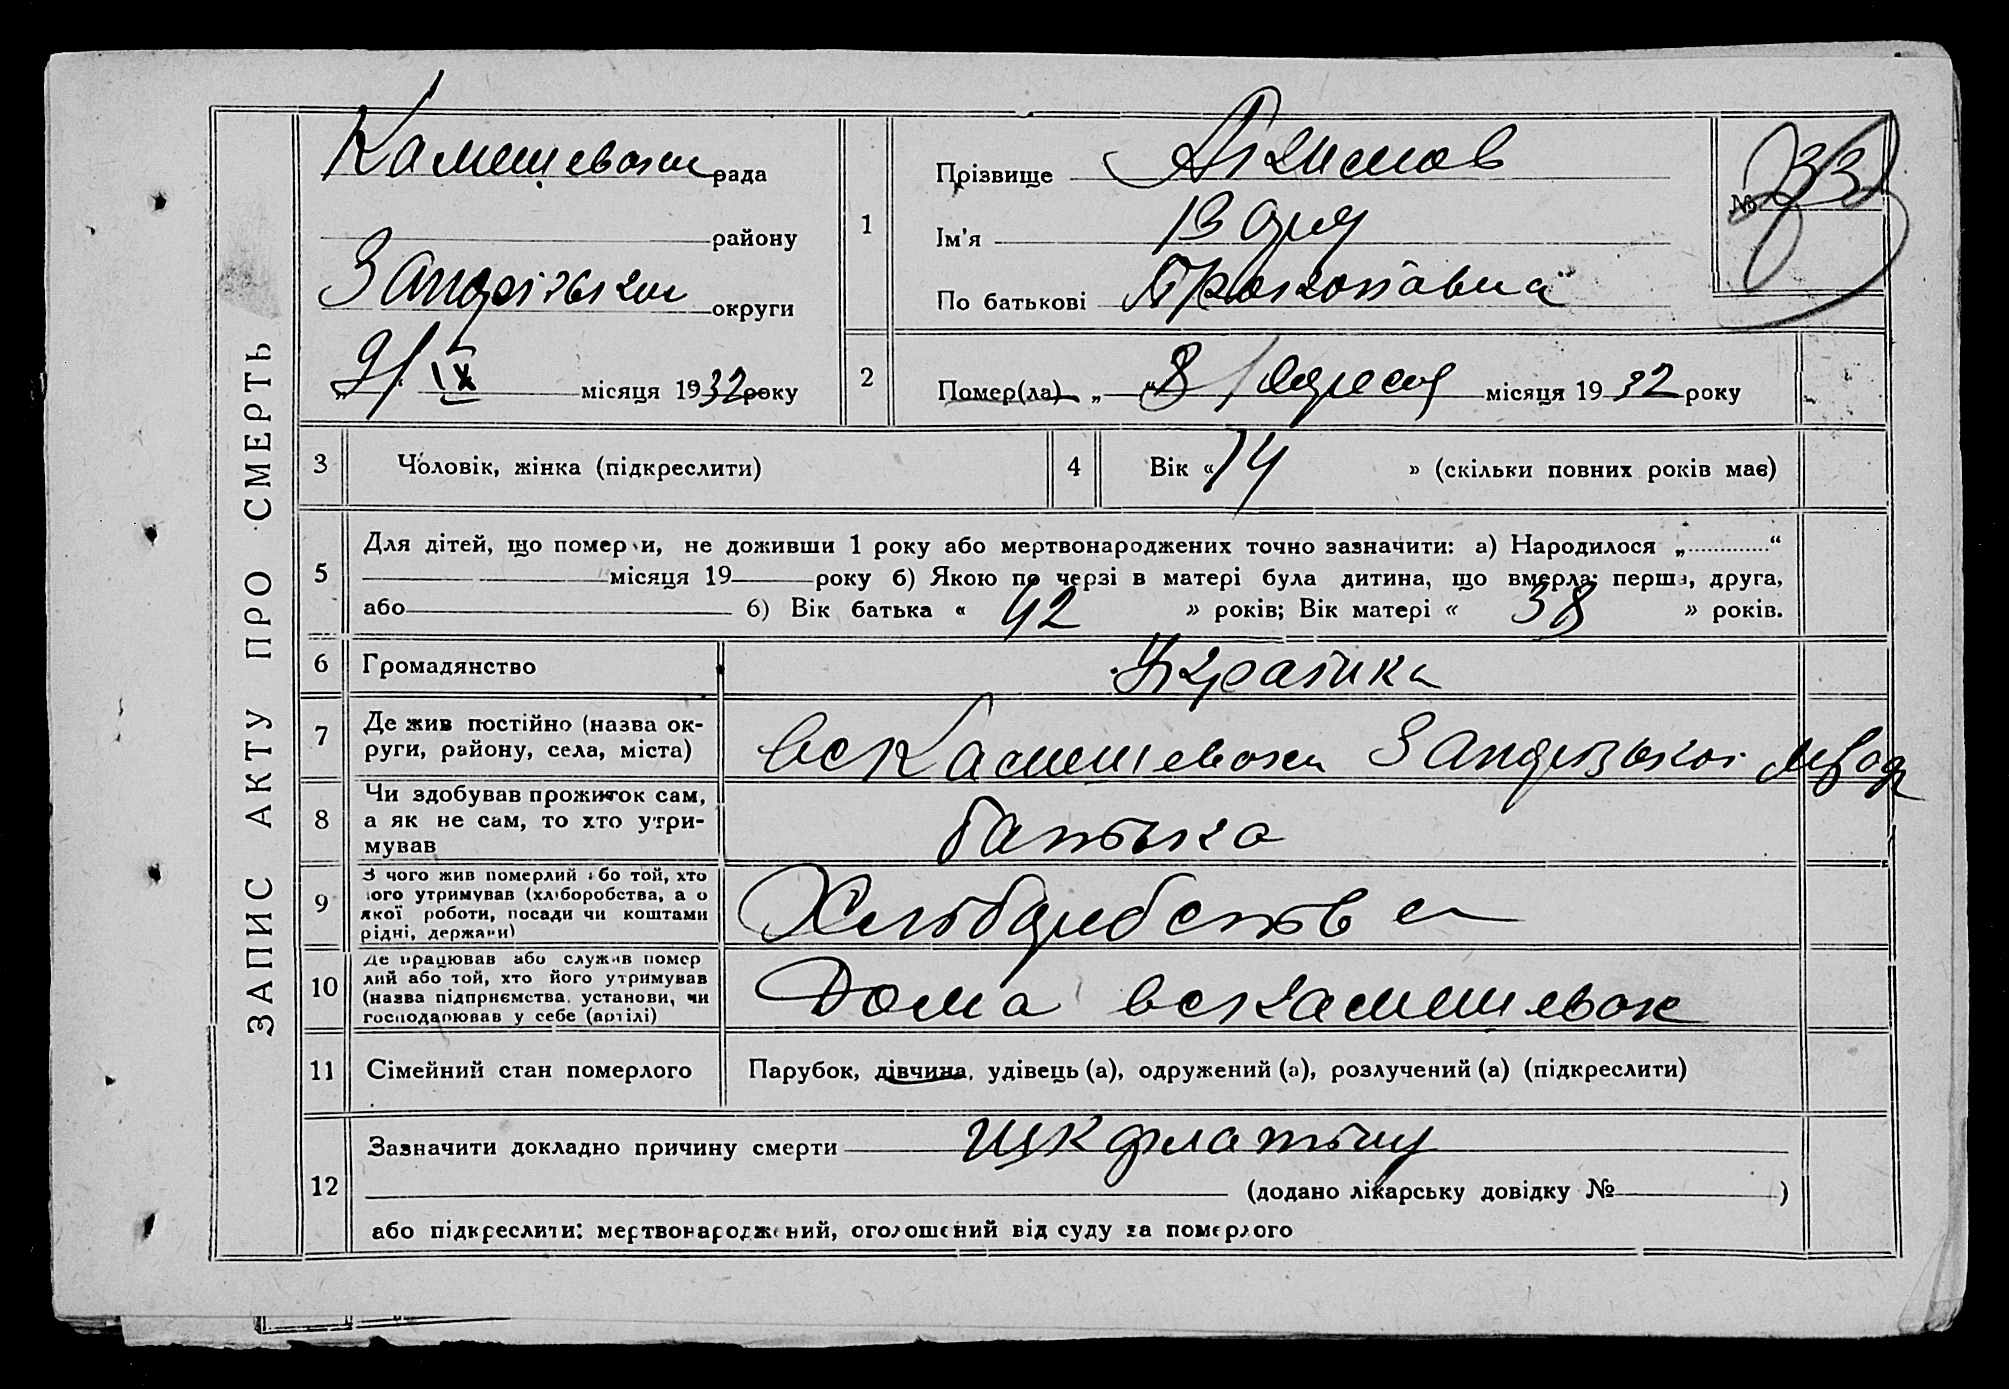 ЗАПИС АКТУ ПРО СМЕРТЬ
Камешеваски рада
району
округи
9/IX місяця 1932 року
1
Прізвище Акимов
Ім'я
По батькові
№ 33
2
Помер(ла) „ 8 місяця 1932 року
3
Чоловік, жінка (підкреслити)
4
Вік « 14 » (скільки повних років має)
5
Для дітей, що померли, не доживши 1 року або мертвонароджених точно зазначити: а) Народилося „ “
місяця 19 року б) Якою по черзі в матері була дитина, що вмерла: перша, друга,
або б) Вік батька « 42 » років; Вік матері « 38 » років.
6
Громадянство
7
Де жив постійно (назва ок-
руги, району, села, міста)
8
Чи здобував прожиток сам,
а як не сам, то хто утри-
мував
батька
9
З чого жив померлий або той, хто
його утримував (хліборобства, а о
якої роботи, посади чи коштами
рідні, держави)
10
Де працював або служив помер
лий або той, хто його утримував
(назва підприємства, установи, чи
господарював у себе (артілі)
Дома
11
Сімейний стан померлого
Парубок, дівчина, удівець (а), одружений (а), розлучений (а) (підкреслити)
12
Зазначити докладно причину смерти
(додано лікарську довідку № )
або підкреслити: мертвонароджений, оголошений від суду за померлого